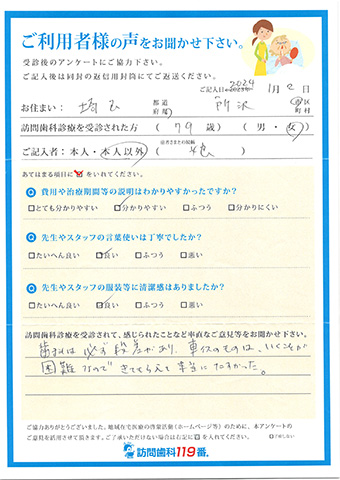 ご利用者様の声をお聞かせ下さい。
受診後のアンケートにご協力下さい。
ご記入後は同封の返信用封筒にてご返送ください。
2024
ご記入日 1月2日
お住まい: 埼玉 都道府県 所沢 市区町村
訪問歯科診療を受診された方 ( 79 歳) ( 男・女 )
ご記入者:本人・本人以外 患者さまとの続柄 ( 娘 )
あてはまる項目に☑をいれてください。
Q 費用や治療期間等の説明はわかりやすかったですか?
□とても分かりやすい ☑分かりやすい □ふつう □分かりにくい
Q 先生やスタッフの言葉使いは丁寧でしたか?
□たいへん良い ☑良い □ふつう □悪い
Q 先生やスタッフの服装等に清潔感はありましたか?
□たいへん良い ☑良い □ふつう □悪い
訪問歯科診療を受診されて、感じられたことなど率直なご意見等をお聞かせ下さい。
歯科は必ず段差があり、車イスのものは、いくことが
困難なので きてもらえて本当にたすかった。
ご協力ありがとうございました。地域在宅医療の啓蒙活動(ホームページ等)のために、本アンケートの
ご意見を活用させて頂きます。ご了承いただけない場合は右記に☑を入れてください。 □了承しない
訪問歯科119番。